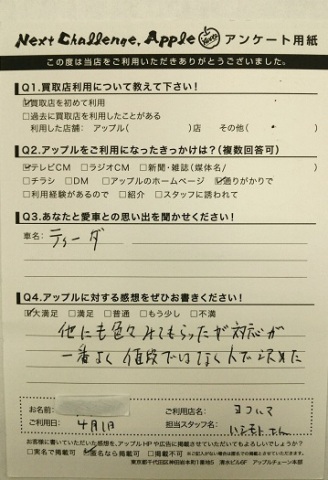 Next Challenge, Apple アンケート用紙
この度は当店をご利用いただきありがとうございました。
Q1.買取店利用について教えて下さい!
☑買取店を初めて利用
□過去に買取店を利用したことがある
利用した店舗: アップル( )店 その他( )
Q2.アップルをご利用になったきっかけは?(複数回答可)
☑テレビCM □ラジオCM □新聞・雑誌(媒体名/ )
□チラシ □DM □アップルのホームページ ☑通りがかりで
□利用経験があるので □紹介 □スタッフに誘われて
Q3.あなたと愛車との思い出を聞かせください!
車名: ティーダ
Q4.アップルに対する感想をぜひお書きください!
☑大満足 □満足 □普通 □もう少し □不満
他にも色々みてもらったが対応が
一番よく値段ではなく人で決めた
お名前:
ご利用日: 4月1日
ご利用店名:
担当スタッフ名: さん
お客様に書いていただいた感想を、アップルHPや広告に掲載させていただいてもよろしいでしょうか?
□実名で掲載可 ☑匿名なら掲載可 □掲載不可 ※ご記入がない場合は匿名での掲載とさせていただきます。
東京都千代田区神田岩本町1番地5 清水ビル6F アップルチェーン本部